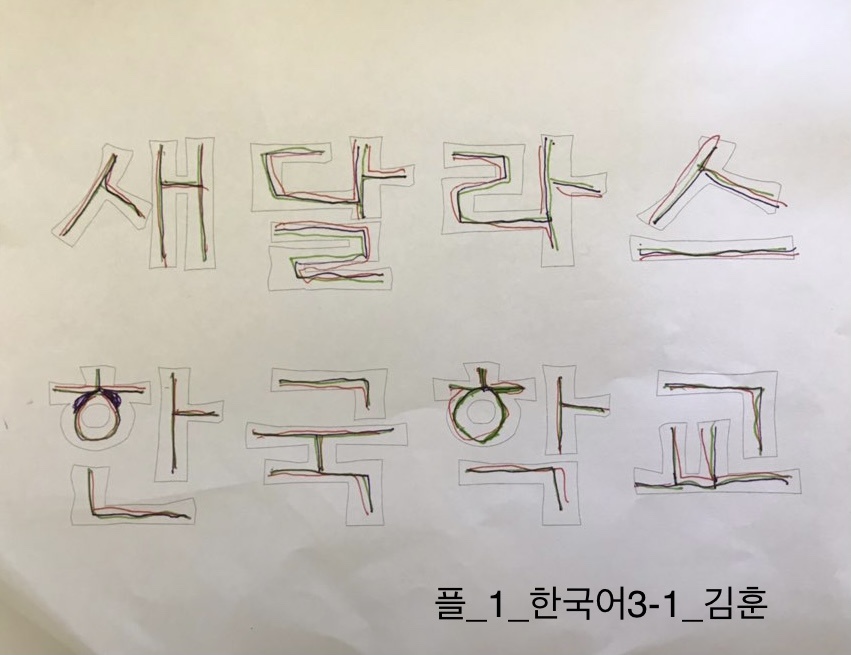 새달라스
한국학교
플_1_한국어3-1_김훈